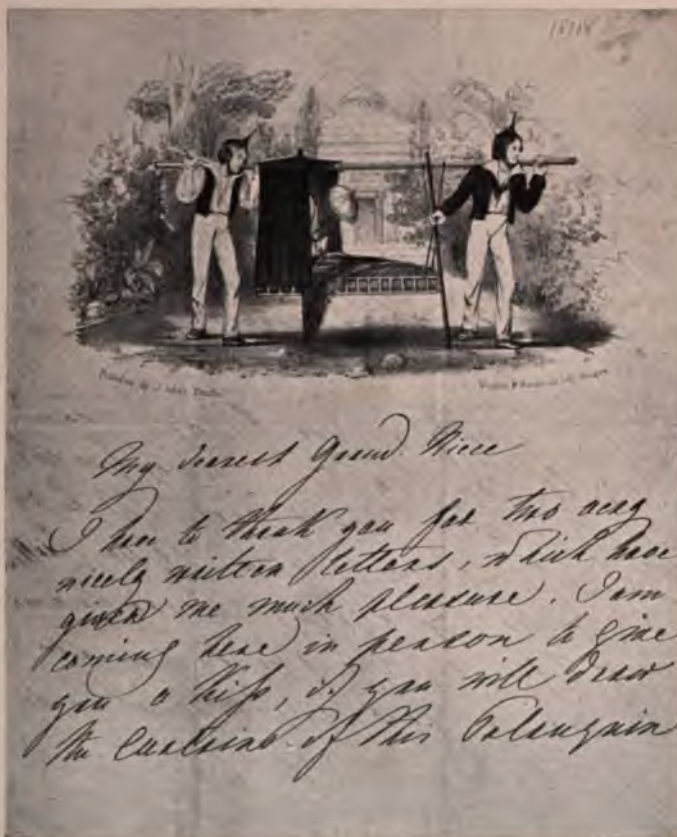 My dearest Grand Niece
I have to thank you for two very
nicely written letters, which have
given me much pleasure. I am
coming here in person to give
you a kiss, if you will draw
the curtains of this Palanquin